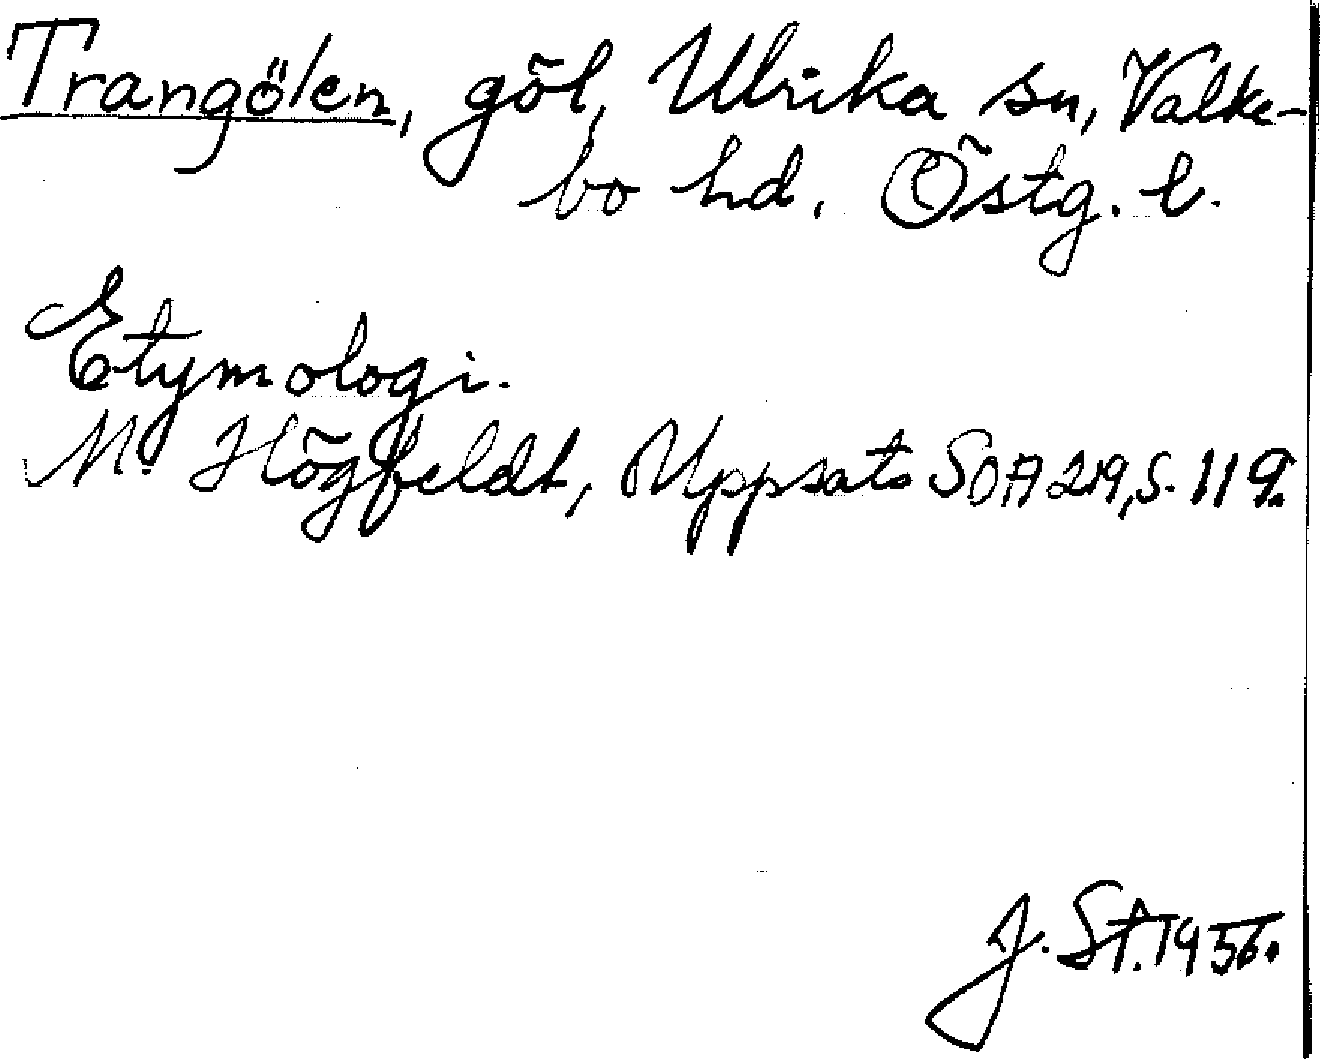 Trangölen, göl, Ulrika sn, Valke-
bo hd. Östg. l.
Etymologi.
M. Högfeldt, Uppsats SOA 219, s. 119.
J. St. 1956.